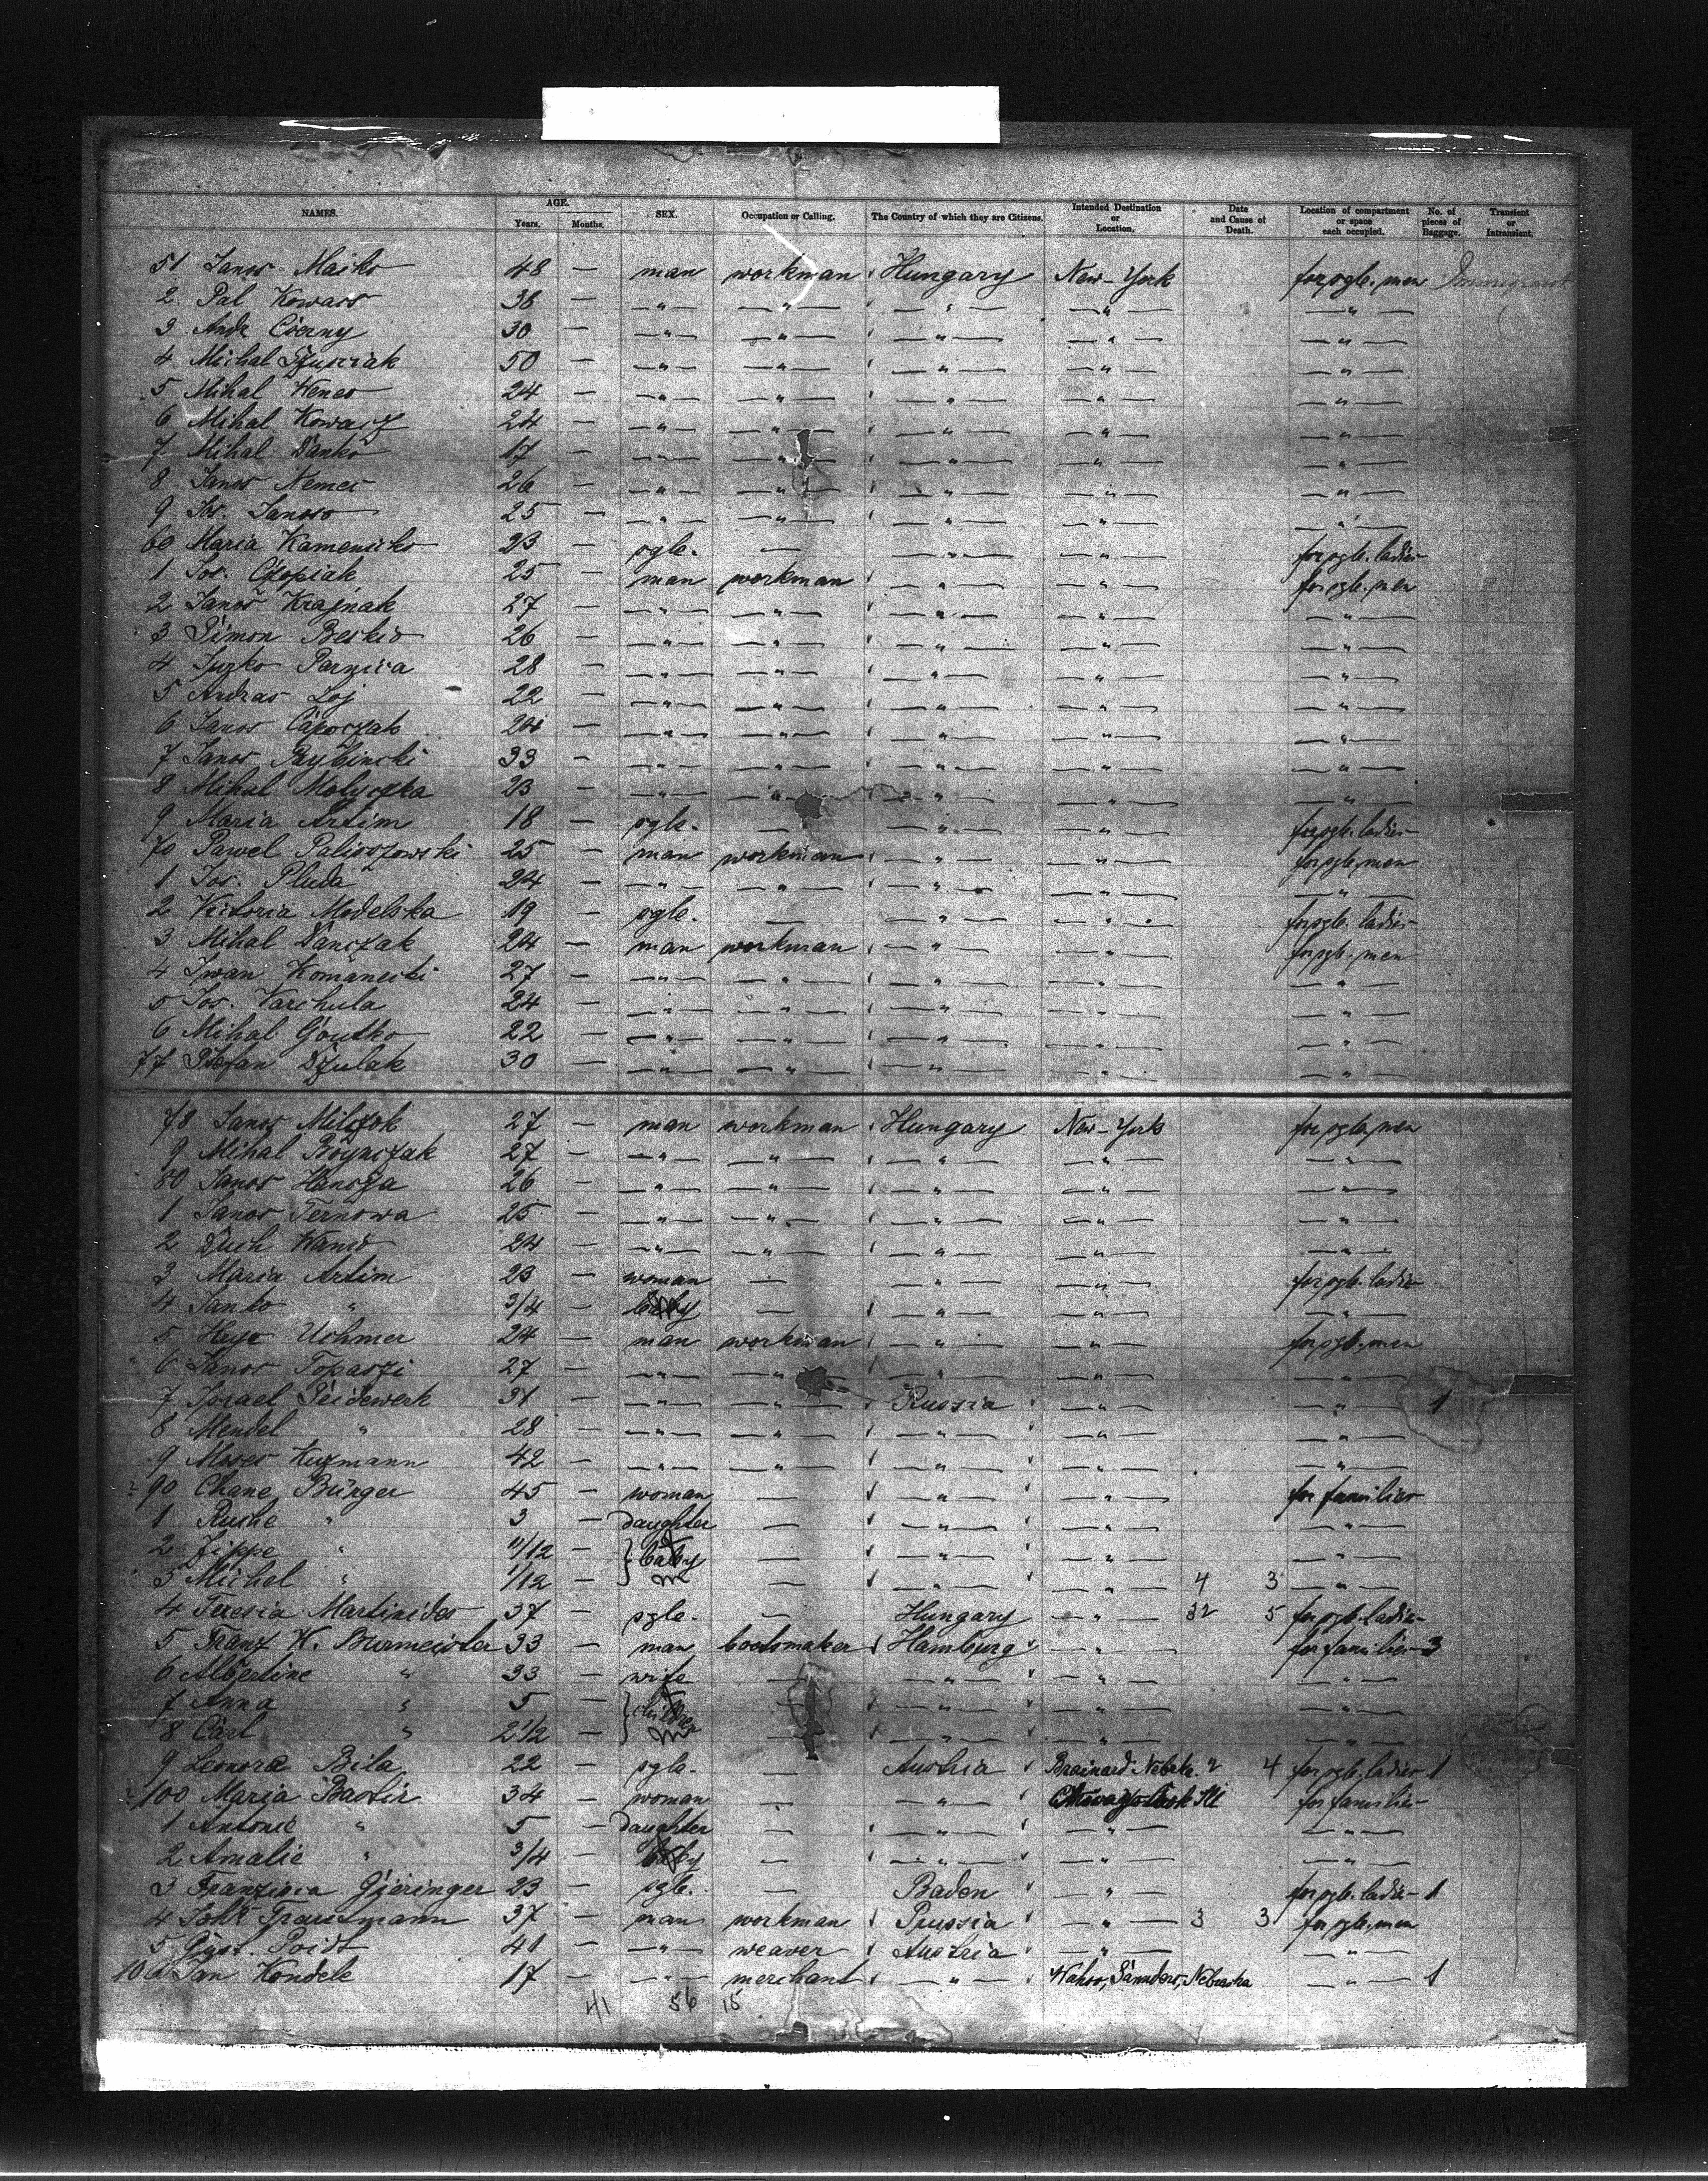 NAMES. AGE. Years. Months. SEX. Occupation or Calling. The Country of which they are Citizens. Intended Destination or Location. Date and Cause of Death. Location of compartment or space each occupied. No. of pieces of Baggage. Transient or Intransient.
51 Janos Maiko 48 — man workman Hungary New-York for sgle. men Immigrant
2 Pal Kowacs 38 — —"— —"— —"— —"— —"—
3 Andr Czerny 30 — —"— —"— —"— —"— —"—
4 Michal 50 — —"— —"— —"— —"— —"—
5 Mihal 24 — —"— —"— —"— —"— —"—
6 Mihal Kowacz 24 — —"— —"— —"— —"— —"—
7 Mihal Danko 17 — —"— —"— —"— —"— —"—
8 Janos Nemes 26 — —"— —"— —"— —"— —"—
9 Jos. Janoso 25 — —"— —"— —"— —"— —"—
60 Maria 23 — sgle. — —"— —"— for sgle. ladies
1 Jos. 25 — man workman —"— —"— for sgle. men
2 Janos Krajnak 27 — —"— —"— —"— —"— —"—
3 Simon Beskid 26 — —"— —"— —"— —"— —"—
4 28 — —"— —"— —"— —"— —"—
5 Andras Loj 22 — —"— —"— —"— —"— —"—
6 Janos 24 — —"— —"— —"— —"— —"—
7 Janos Rybinski 33 — —"— —"— —"— —"— —"—
8 Mihal Molyczka 23 — —"— —"— —"— —"— —"—
9 Maria Artim 18 — sgle. — —"— —"— for sgle. ladies
70 Pawel Palioszowski 25 — man workman —"— —"— for sgle. men
1 Jos. Pluda 24 — —"— —"— —"— —"— —"—
2 Victoria Modelska 19 — sgle. — —"— —"— for sgle. ladies
3 Mihal Danczak 24 — man workman —"— —"— for sgle. men
4 Iwan Komanecki 27 — —"— —"— —"— —"— —"—
5 Jos. Varchula 24 — —"— —"— —"— —"— —"—
6 Mihal Goutko 22 — —"— —"— —"— —"— —"—
77 Stefan Dzulak 30 — —"— —"— —"— —"— —"—
78 Janos Milczok 27 — man workman Hungary New-York for sgle. men
9 Mihal Bogaczak 27 — —"— —"— —"— —"— —"—
80 Janos Hansza 26 — —"— —"— —"— —"— —"—
1 Janos Ternowa 25 — —"— —"— —"— —"— —"—
2 24 — —"— —"— —"— —"— —"—
3 Maria Artim 23 — woman — —"— —"— for sgle. ladies
4 Janko " 3/4 — baby — —"— —"— —"—
5 Uchmer 24 — man workman —"— —"— for sgle. men
6 Janos Topaszi 27 — —"— —"— —"— —"— —"—
7 Israel Seidewerk 31 — —"— —"— Russia —"— —"— 1
8 Mendel " 28 — —"— —"— —"— —"— —"—
9 Moses 42 — —"— —"— —"— —"— —"—
90 Chane Bürger 45 — woman — —"— —"— for families
1 Ruche " 3 — daughter — —"— —"— —"—
2 Zippe " 11/12 — baby — —"— —"— —"—
3 Michel " 1/12 — m — —"— —"— 4 3 —"—
4 Teresia Martinides 37 — sgle. — Hungary —"— 32 5 for sgle. ladies
5 Franz H. Burmeister 33 — man bootsmaker Hamburg —"— for families 3
6 Albertine " 33 — wife — —"— —"— —"—
7 Anna " 5 — children — —"— —"— —"—
8 Carl " 2 1/2 — m — —"— —"— —"—
9 Leonora Bila 22 — sgle. — Austria Brainard Nebrk. 2 4 for sgle. ladies 1
100 Maria Bastir 34 — woman — —"— Ill for families
1 Antonie " 5 — daughter — —"— —"— —"—
2 Amalie " 3/4 — baby — —"— —"— —"—
3 Franzisca Gjeringer 23 — sgle. — Baden —"— for sgle. ladies 1
4 Joh. Trautmann 37 — man workman Prussia —"— 3 3 for sgle. men
5 Gust. Poidt 41 — —"— weaver Austria —"— —"—
106 Jan Kondele 17 — —"— merchant —"— Wahoo, Saunders, Nebraska —"— 1
41 56 15